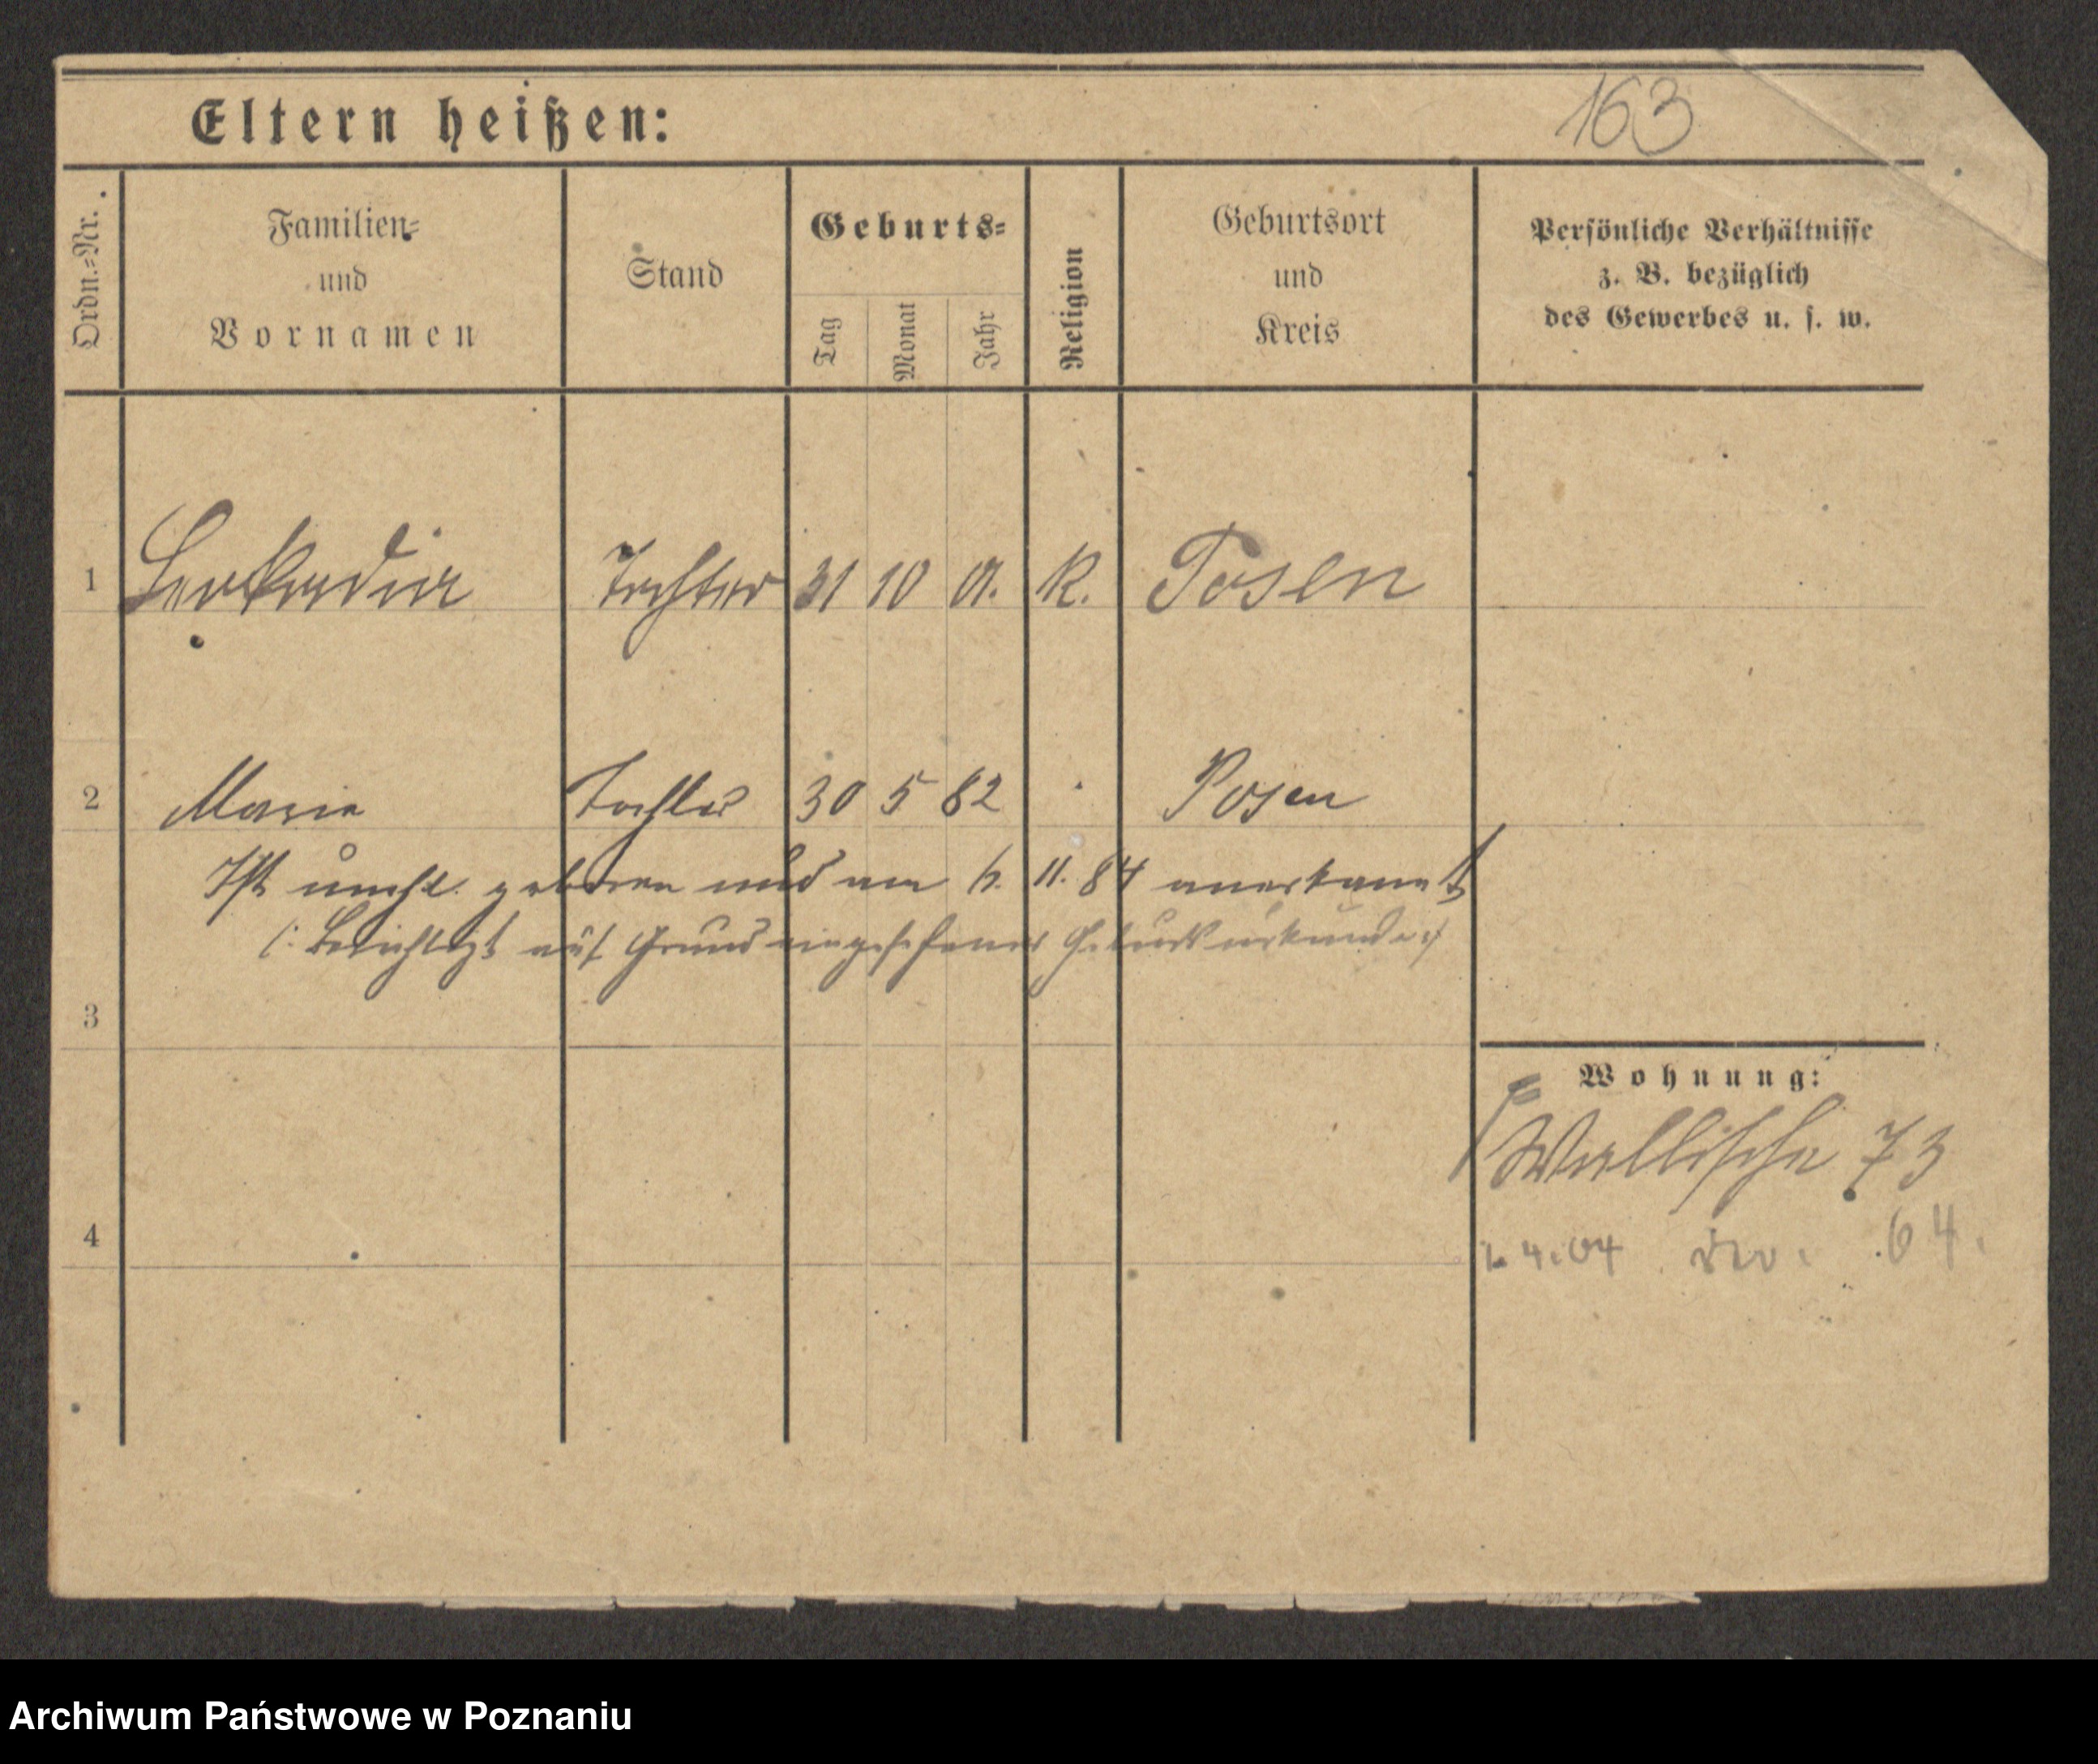 Eltern heißen:
163
Ordn.-Nr.
Familien-
und
Vornamen
Stand
Geburts-
Tag
Monat
Jahr
Religion
Geburtsort
und
Kreis
Persönliche Verhältnisse
z. B. bezüglich
des Gewerbes u. s. w.
1 Leokadia Tochter 31 10 01. K. Posen
2 Maria Tochter 30 5 82 Posen
Ist unehl. geboren und am 6. 11. 84 anerkannt
(: Berichtigt auf Grund eingesehener Geburtsurkunde :)
3
Wohnung:
Wallische 73
1. 4. 04 64.
4
Archiwum Państwowe w Poznaniu